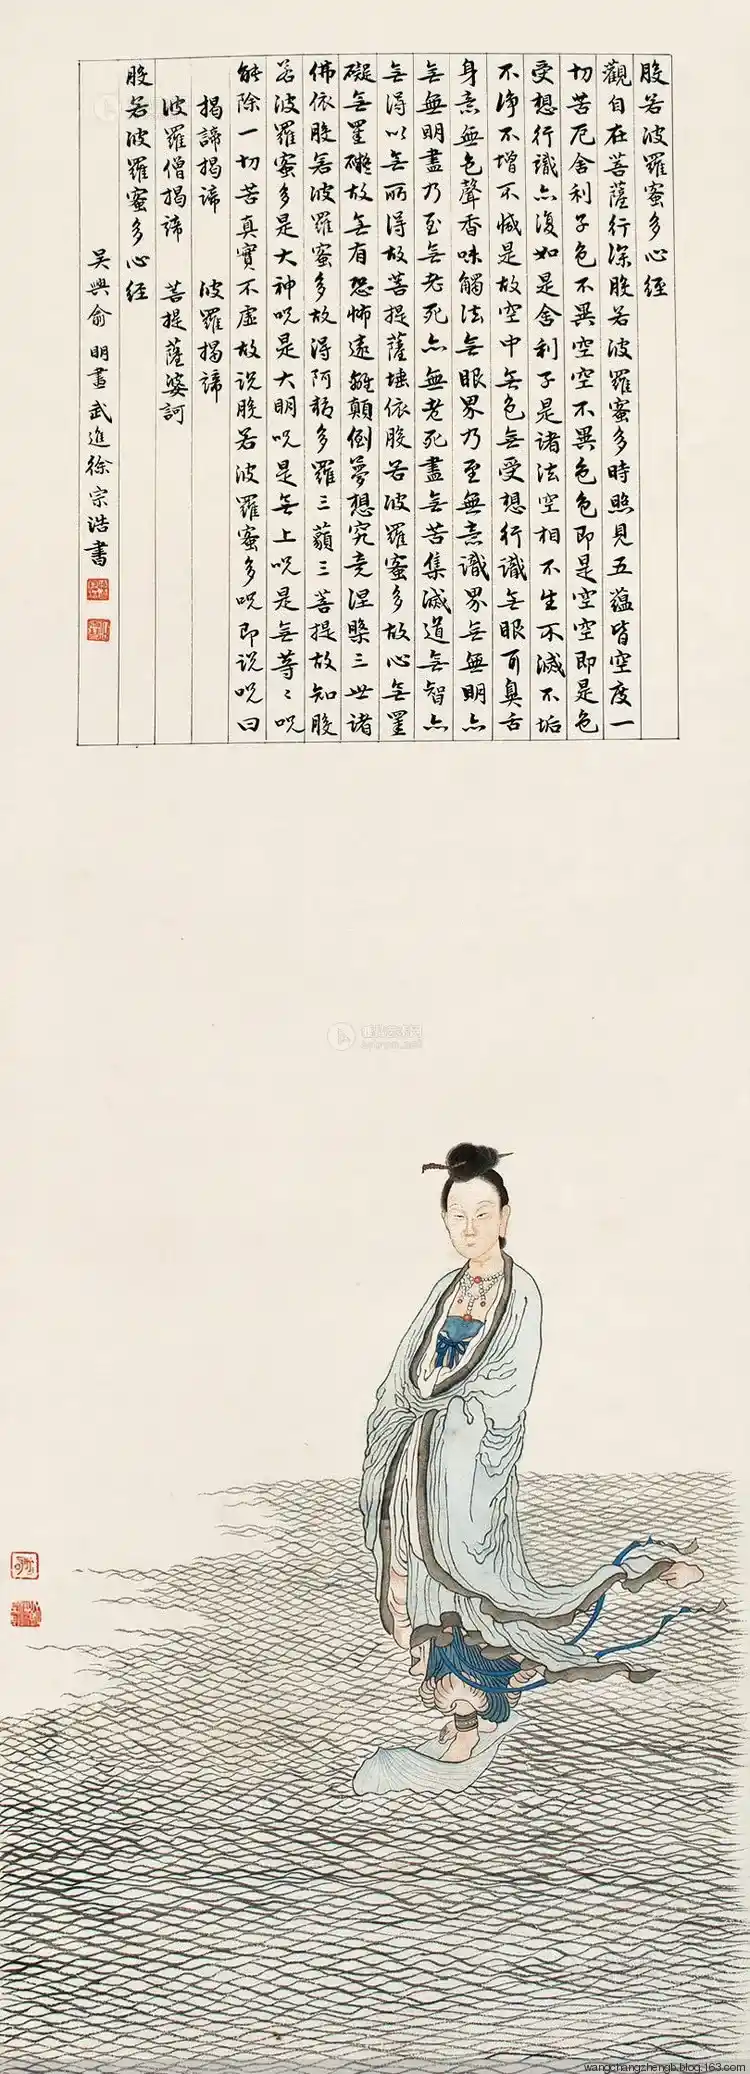 般若波羅蜜多心經
觀自在菩薩行深般若波羅蜜多時照見五蘊皆空度一
切苦厄舍利子色不異空空不異色色即是空空即是色
受想行識亦復如是舍利子是諸法空相不生不滅不垢
不淨不增不減是故空中無色無受想行識無眼耳鼻舌
身意無色聲香味觸法無眼界乃至無意識界無無明亦
無無明盡乃至無老死亦無老死盡無苦集滅道無智亦
無得以無所得故菩提薩埵依般若波羅蜜多故心無罣
礙無罣礙故無有恐怖遠離顛倒夢想究竟涅槃三世諸
佛依般若波羅蜜多故得阿耨多羅三藐三菩提故知般
若波羅蜜多是大神呪是大明呪是無上呪是無等〻呪
能除一切苦真實不虛故說般若波羅蜜多呪即說呪曰
揭諦揭諦 波羅揭諦
波羅僧揭諦 菩提薩婆訶
般若波羅蜜多心經
吳興俞明畫武進徐宗浩書
wangchangzhengb.blog.163.com